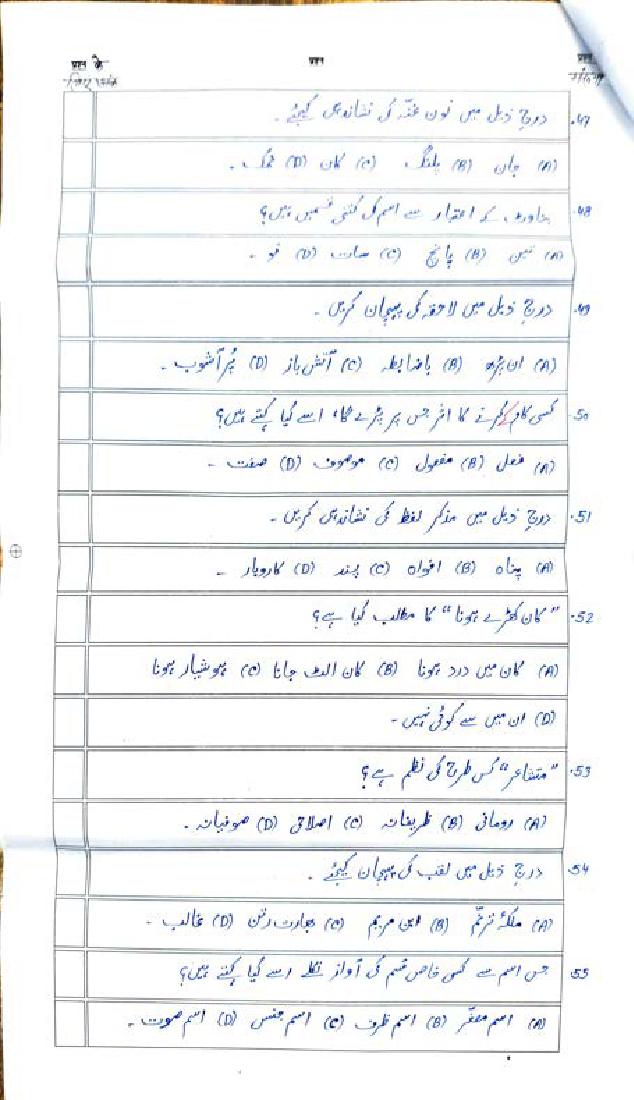 प्रश्न के प्रश्न प्रश्न
47. درج ذیل میں نون غنّہ کی نشاندہی کیجئے۔
(A) جان (B) پلنگ (C) کان (D) نمک۔
48. بناوٹ کے اعتبار سے اسم کی کتنی قسمیں ہیں؟
(A) تین (B) پانچ (C) سات (D) نو۔
49. درج ذیل میں لاحقہ کی پہچان کریں۔
(A) ان پڑھ (B) باضابطہ (C) آتش باز (D) پُر آشوب۔
50. کسی کام کے کرنے کا اثر جس پر پڑے گا، اسے کیا کہتے ہیں؟
(A) فعل (B) مفعول (C) موصوف (D) صفت۔
51. درج ذیل میں مذکر لفظ کی نشاندہی کریں۔
(A) پناہ (B) افواہ (C) پند (D) کاروبار۔
52. "کان کھڑے ہونا" کا مطلب کیا ہے؟
(A) کان میں درد ہونا (B) کان الٹ جانا (C) ہوشیار ہونا
(D) ان میں سے کوئی نہیں۔
53. "متشاعر" کس طرح کی نظم ہے؟
(A) رومانی (B) ظریفانہ (C) اصلاحی (D) صوفیانہ۔
54. درج ذیل میں لقب کی پہچان کیجئے۔
(A) ملکۂ ترنّم (B) ابن مریم (C) بھارت رتن (D) غالب۔
55. جس اسم سے کسی خاص قسم کی آواز نکلے اسے کیا کہتے ہیں؟
(A) اسم مصغّر (B) اسم ظرف (C) اسم جنس (D) اسم صوت۔